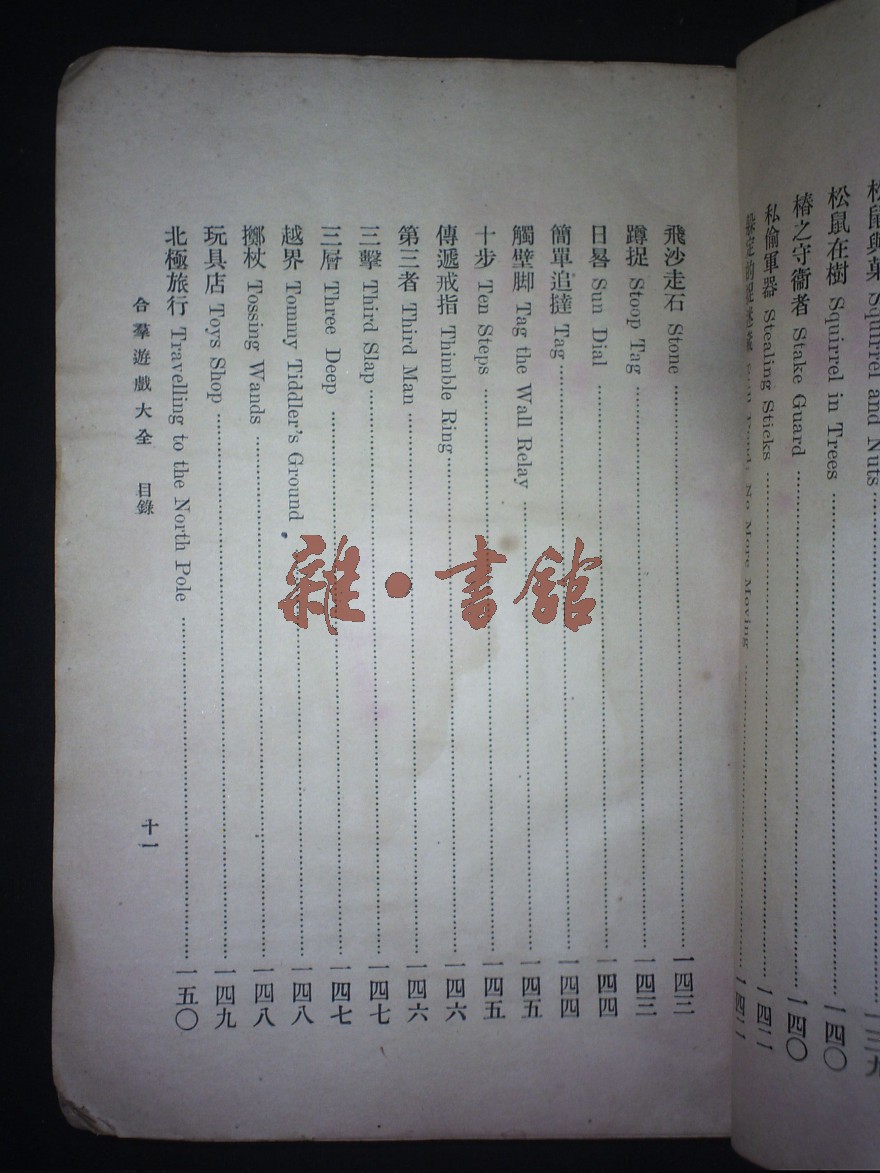 松鼠在樹 Squirrel in Trees 一四〇
樁之守衛者 Stake Guard 一四〇
私偷軍器 Stealing Sticks 一四二
飛沙走石 Stone 一四三
蹲捉 Stoop Tag 一四三
日晷 Sun Dial 一四四
簡單追撻 Tag 一四四
觸壁脚 Tag the Wall Relay 一四五
十步 Ten Steps 一四五
傳遞戒指 Thimble Ring 一四六
第三者 Third Man 一四六
三擊 Third Slap 一四七
三層 Three Deep 一四七
越界 Tommy Tiddler's Ground 一四八
擲杖 Tossing Wands 一四八
玩具店 Toys Shop 一四九
北極旅行 Travelling to the North Pole 一五〇
合羣遊戲大全 目錄 十一
雜·書館